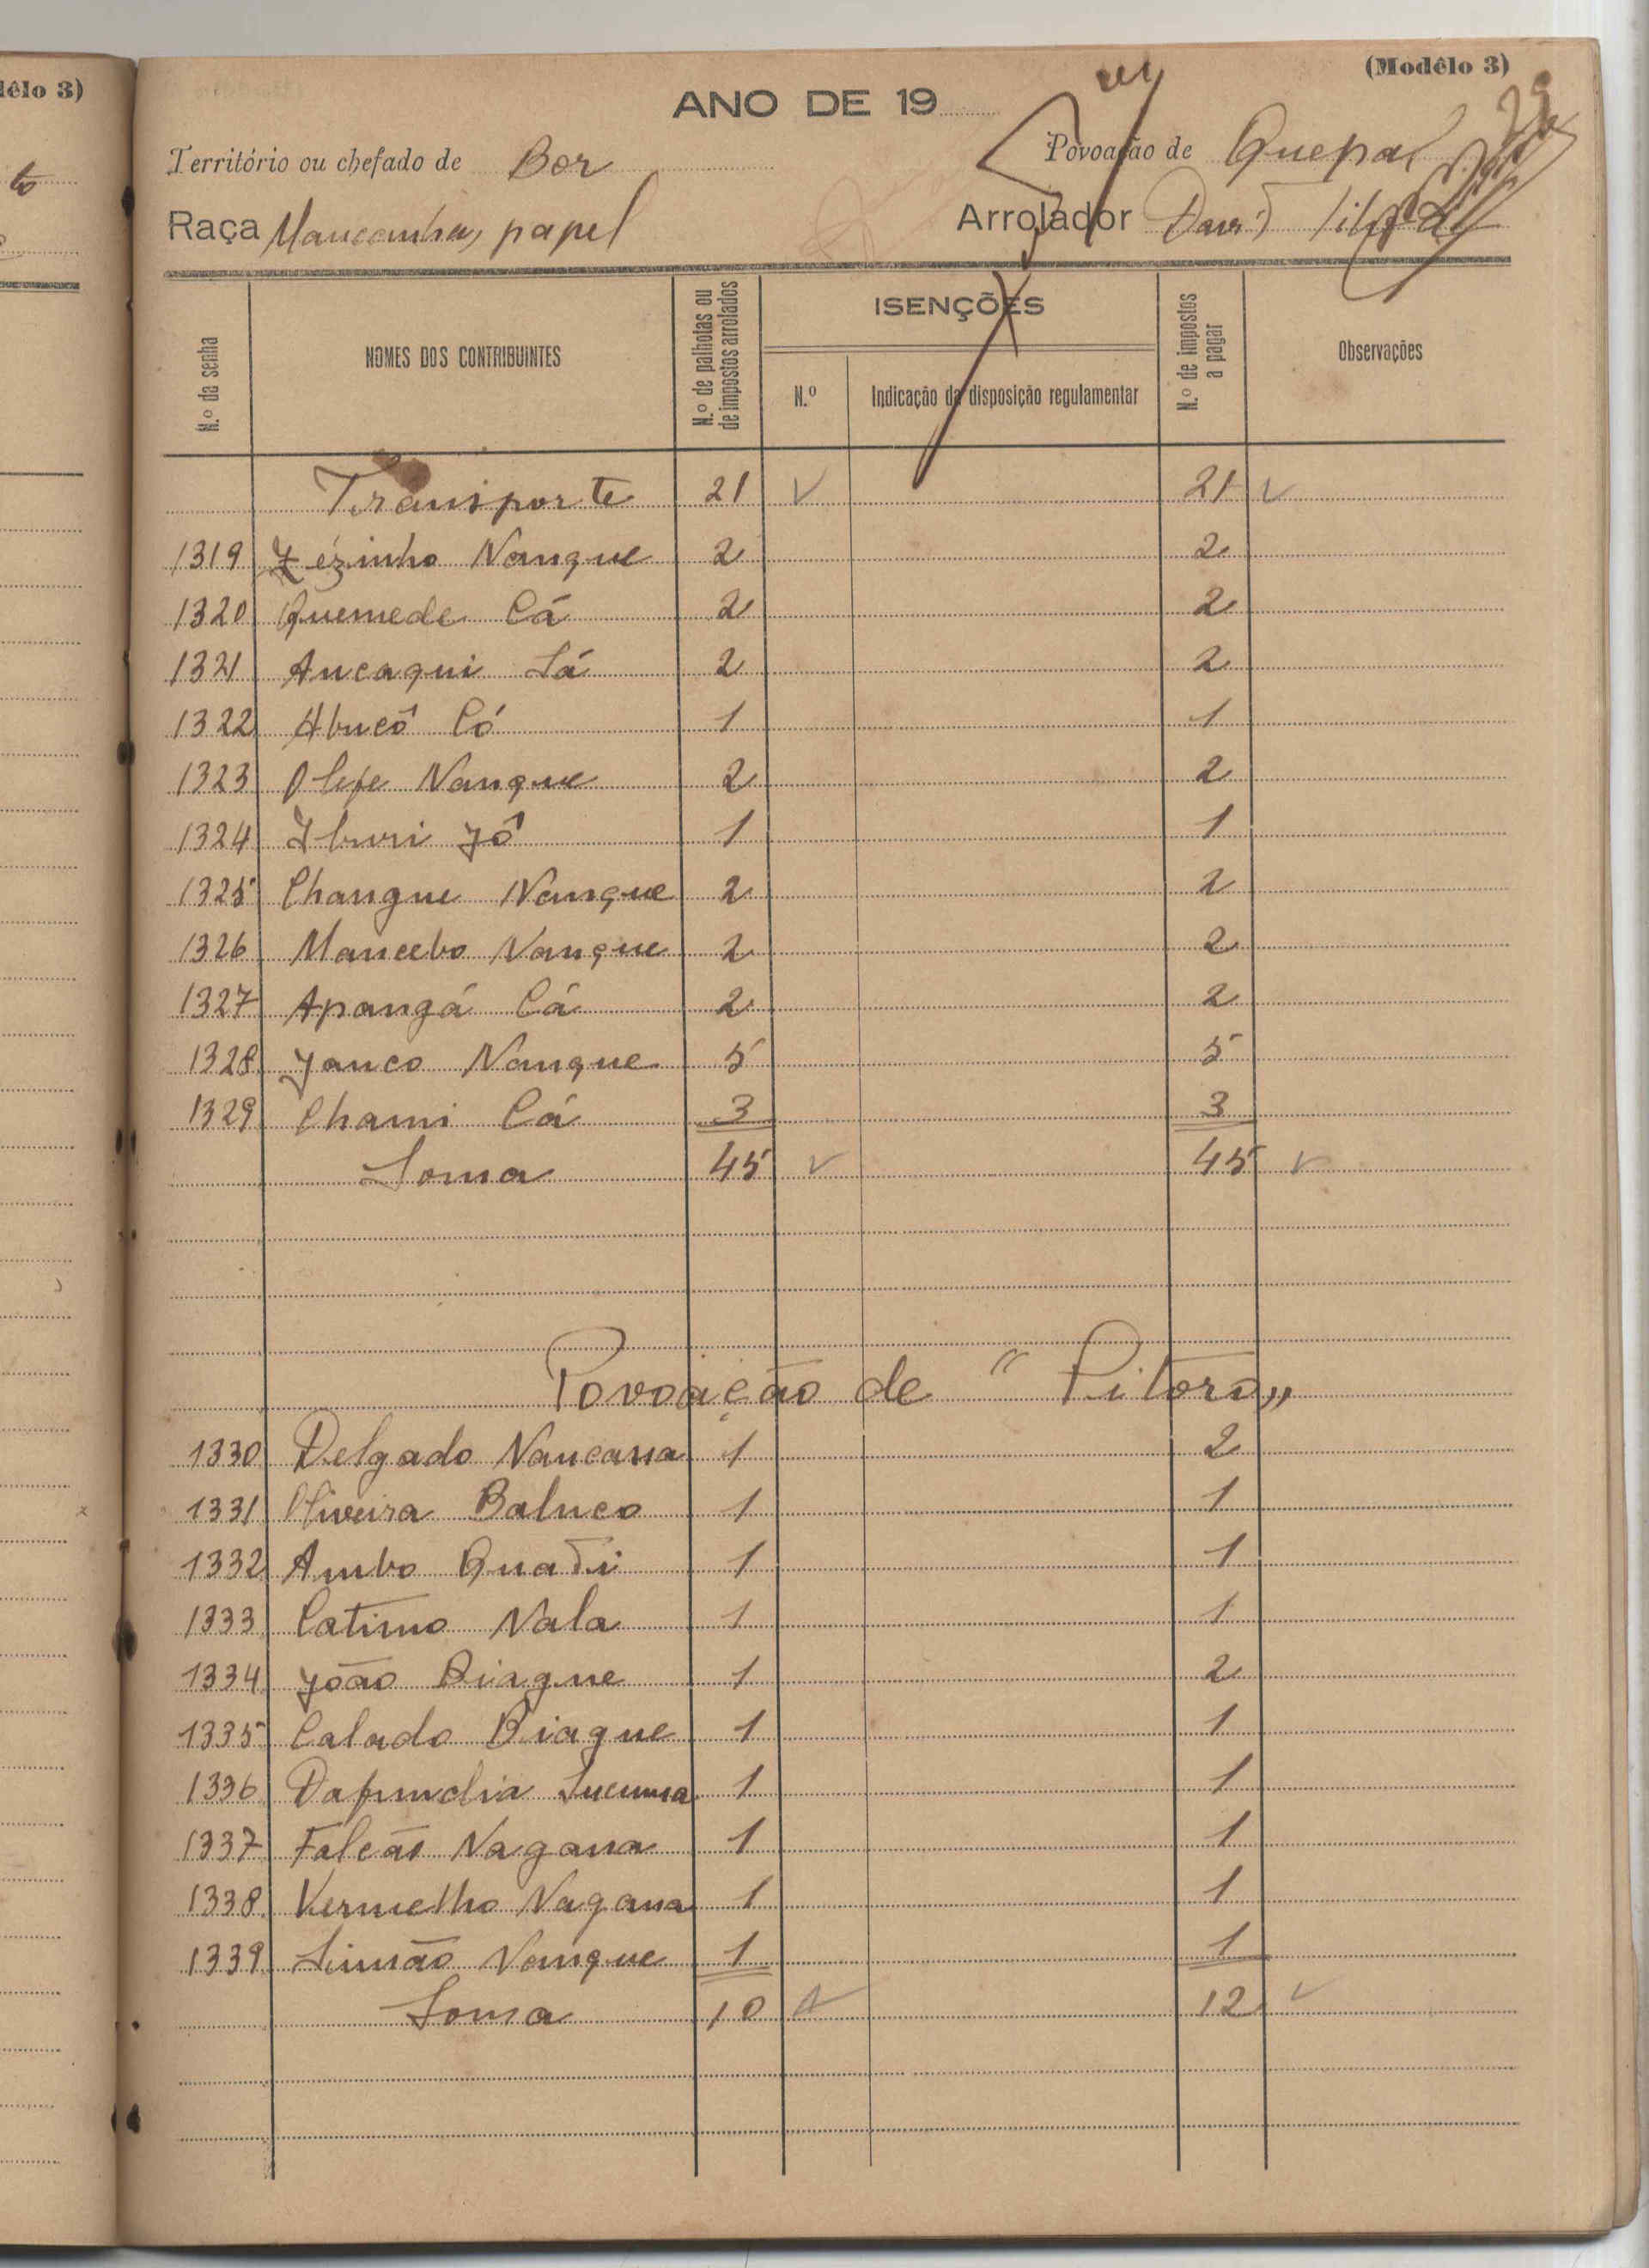 (Modêlo 3)
ANO DE 19
Território ou chefado de Bor
Povoação de
Raça Mancanha, papel
Arrolador
N.º da senha
NOMES DOS CONTRIBUINTES
N.º de palhotas ou de impostos arrolados
ISENÇÕES
N.º
Indicação da disposição regulamentar
N.º de impostos a pagar
Observações
Transporte 21 21
1319 Zézinho Nanque 2 2
1320 Quemede Cá 2 2
1321 Ancaqui Sá 2 2
1322 Abucô Có 1 1
1323 Olefe Nanque 2 2
1324 Iburi Jô 1 1
1325 Changue Nanque 2 2
1326 Mancebo Nanque 2 2
1327 Apangá Cá 2 2
1328 Janco Nanque 5 5
1329 Chami Cá 3 3
Soma 45 45
Povoação de "Pitoro"
1330 Delgado Nancassa 1 2
1331 Oliveira Baluco 1 1
1332 Ambo Quadi 1 1
1333 Catimo Nala 1 1
1334 João Biague 1 2
1335 Calado Biague 1 1
1336 1 1
1337 Falcão Nagana 1 1
1338 Vermelho Nagana 1 1
1339 Simão Nanque 1 1
Soma 10 12
êlo 3)
to